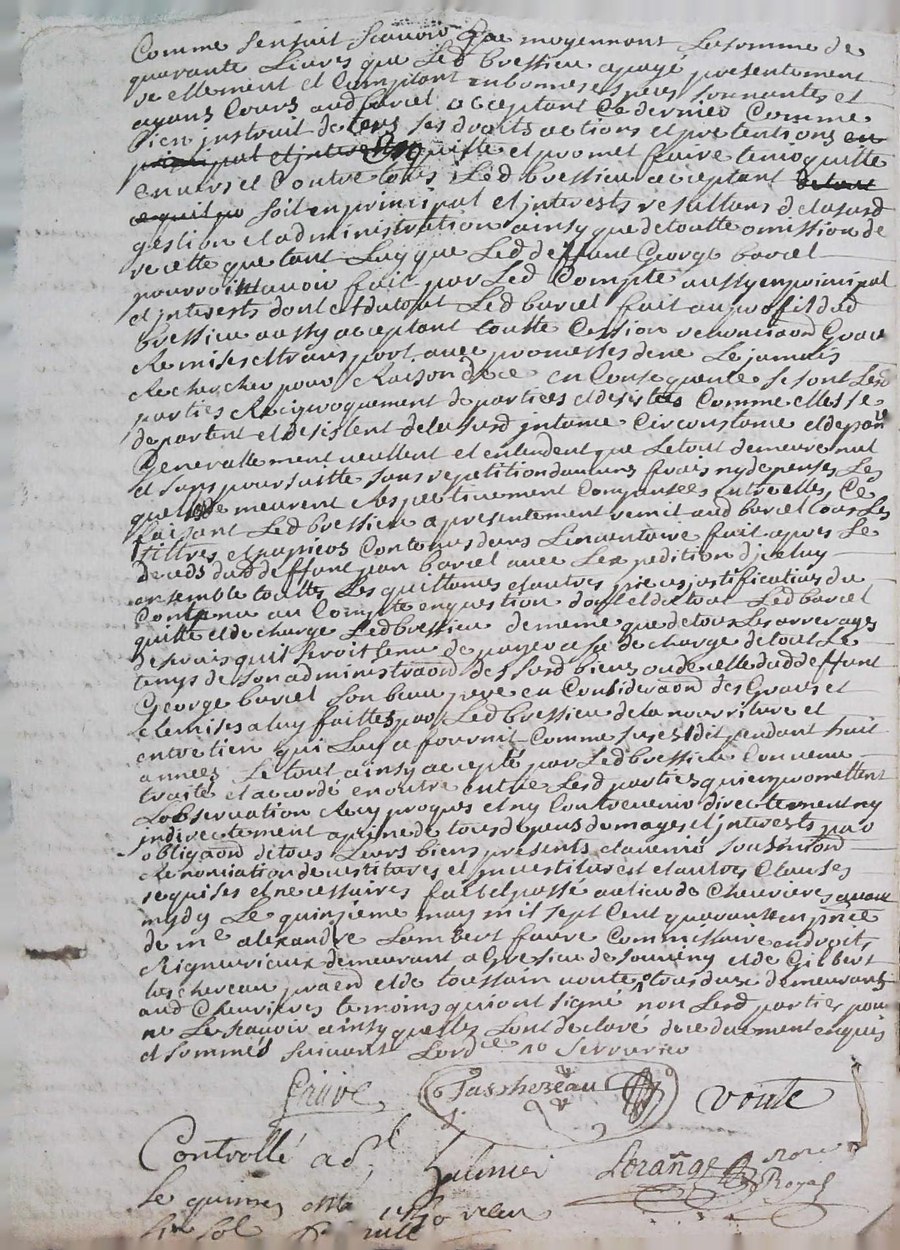 Comme s'ensuit scavoir que moyennant la somme de
quarante Livres que Led bressieu a payé presentement
reellement et Comptant en bonnes especes sonnantes et
ayans Cours aud barcel acceptant Ce dernier Comme
bien instruit de tous ses droits actions et pretentions
quitte et promet faire tenir quitte
envers et Contre tous Led bressieu acceptant
soit en principal et interests resultans de lasusd
gestion et administration ainsy que de toutte omission de
recette que tant Luy que Led deffunt George barcel
pourroint avoir fait par Led Compte aussy en principal
et interests dont et du tout Led barcel fait au profit dud
bressieu aussy acceptant toutte Cession Grace
Remises et transport avec promesses de ne Le jamais
Rechercher pour Raison de ce en Consequence se sont Lesd
parties Reciproquement departies et desistées Comme elles se
departent et desistent de la susd instance Circonstance et
Generallement veullent et entendent que Le tout demeure nul
et sans poursuitte sans repetition d'aucuns frais ny depenses Les
quels demeurent Respectivement Compensées entre elles, Ce
faisant Led bressieu a presentement remit aud barcel tous Les
tiltres et papiers Contenus dans L'inventaire fait apres Le
deceds dud deffunt par barcel avec L'expedition d'iceluy
ensemble touttes Les quittances et autres pieces justificatives du
Contenu au Compte en question dont et du tout Led barcel
quitte et decharge Led bressieu de meme que de tous Les arrerages
qu'il seroit tenu de payer a sa decharge de tout Le
temps de son administraon des susd biens ou de celle dud deffunt
George barcel son beau pere en Consideraon des Graces et
Remises a luy faittes par Led bressieu de la nourriture et
entretien qui Luy a fournit Comme sus est dit pendant huit
années Le tout ainsy accepté par Led bressieu Convenu
traité et accordé en outre entre Lesd parties qui en promettent
L'observation Reciproques et ny Contrevenir directement ny
indirectement a peine de tous depens domages et interests par
obligaon de tous Leurs biens presents et avenir
Renonciation et autres Clauses
requises et necessaires fait et passé au lieu de Chevrieres avant
mydy Le quinzieme may mil sept Cent quarante en prēce
de me alexandre Lambert faure Commissaire en droits
seigneuriaux demeurant a Gresieu de Souveny et de Gilbert
taschereau et de toussain voute tous deux demeurants
aud Chevrieres temoins qui ont signé non Lesd parties pour
ne Le scavoir ainsy qu'elles L'ont declaré de ce duement enquis
et sommés suivant Lordce
faure Taschereau voute
Controllé a St Galmier Lorange nore Royal
Le quinze may 1740 receu